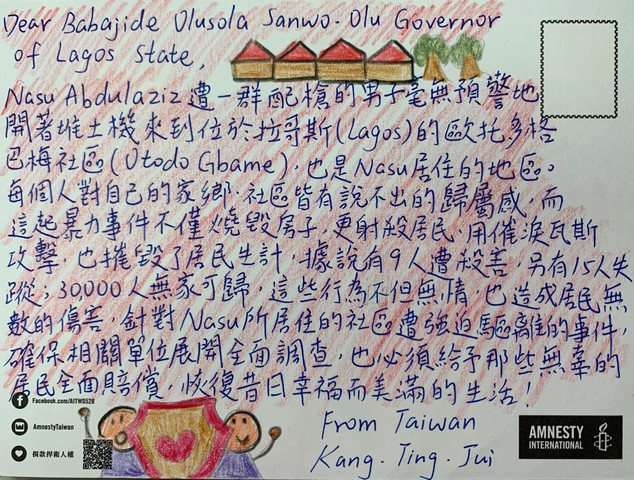 Dear Babajide Olusola Sanwo-Olu Governor
of Lagos State,
Nasu Abdulaziz 遭一群配槍的男子毫無預警地
開著堆土機來到位於拉哥斯(Lagos)的歐托多格
巴梅社區(Otodo Gbame),也是Nasu居住的地區。
每個人對自己的家鄉、社區皆有說不出的歸屬感,而
這起暴力事件不僅燒毀房子,更射殺居民、用催淚瓦斯
攻擊,也摧毀了居民生計,據說有9人遭殺害,另有15人失
蹤;30,000人無家可歸,這些行為不但無情,也造成居民無
數的傷害。針對Nasu所居住的社區遭強迫驅離的事件,
確保相關單位展開全面調查,也必須給予那些無辜的
居民全面賠償,恢復昔日幸福而美滿的生活!
Facebook.com/AITW0528
AmnestyTaiwan
捐款捍衛人權
From Taiwan
Kang-Ting-Jui
AMNESTY
INTERNATIONAL